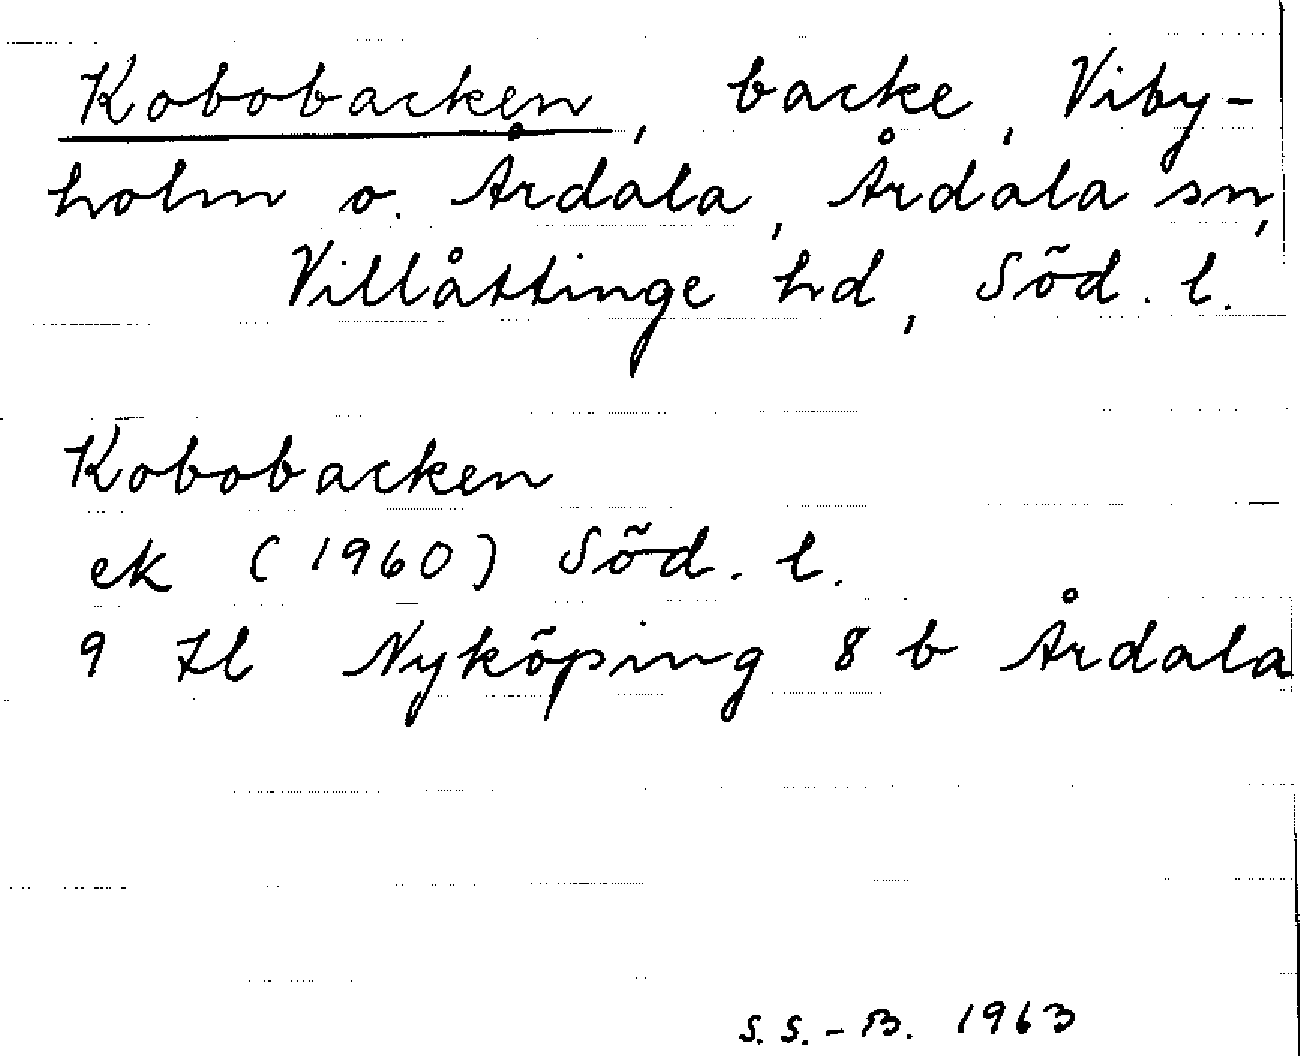 Kobobacken, backe, Viby-
holm o. Årdala, Årdala sn,
Villåttinge hd, Söd. l.
Kobobacken
ek (1960) Söd. l.
9 H Nyköping 8 b Årdala
S. S.-B. 1963